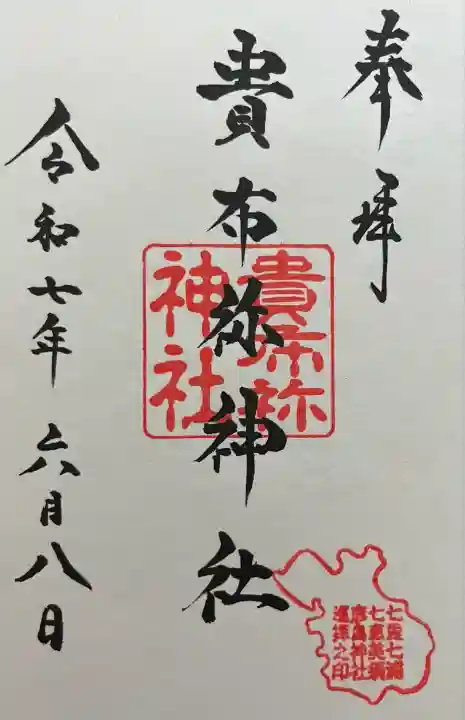 奉拝
貴布祢神社
貴布祢
神社
令和七年六月八日
七浦七浦
七恵美須
神社
之印